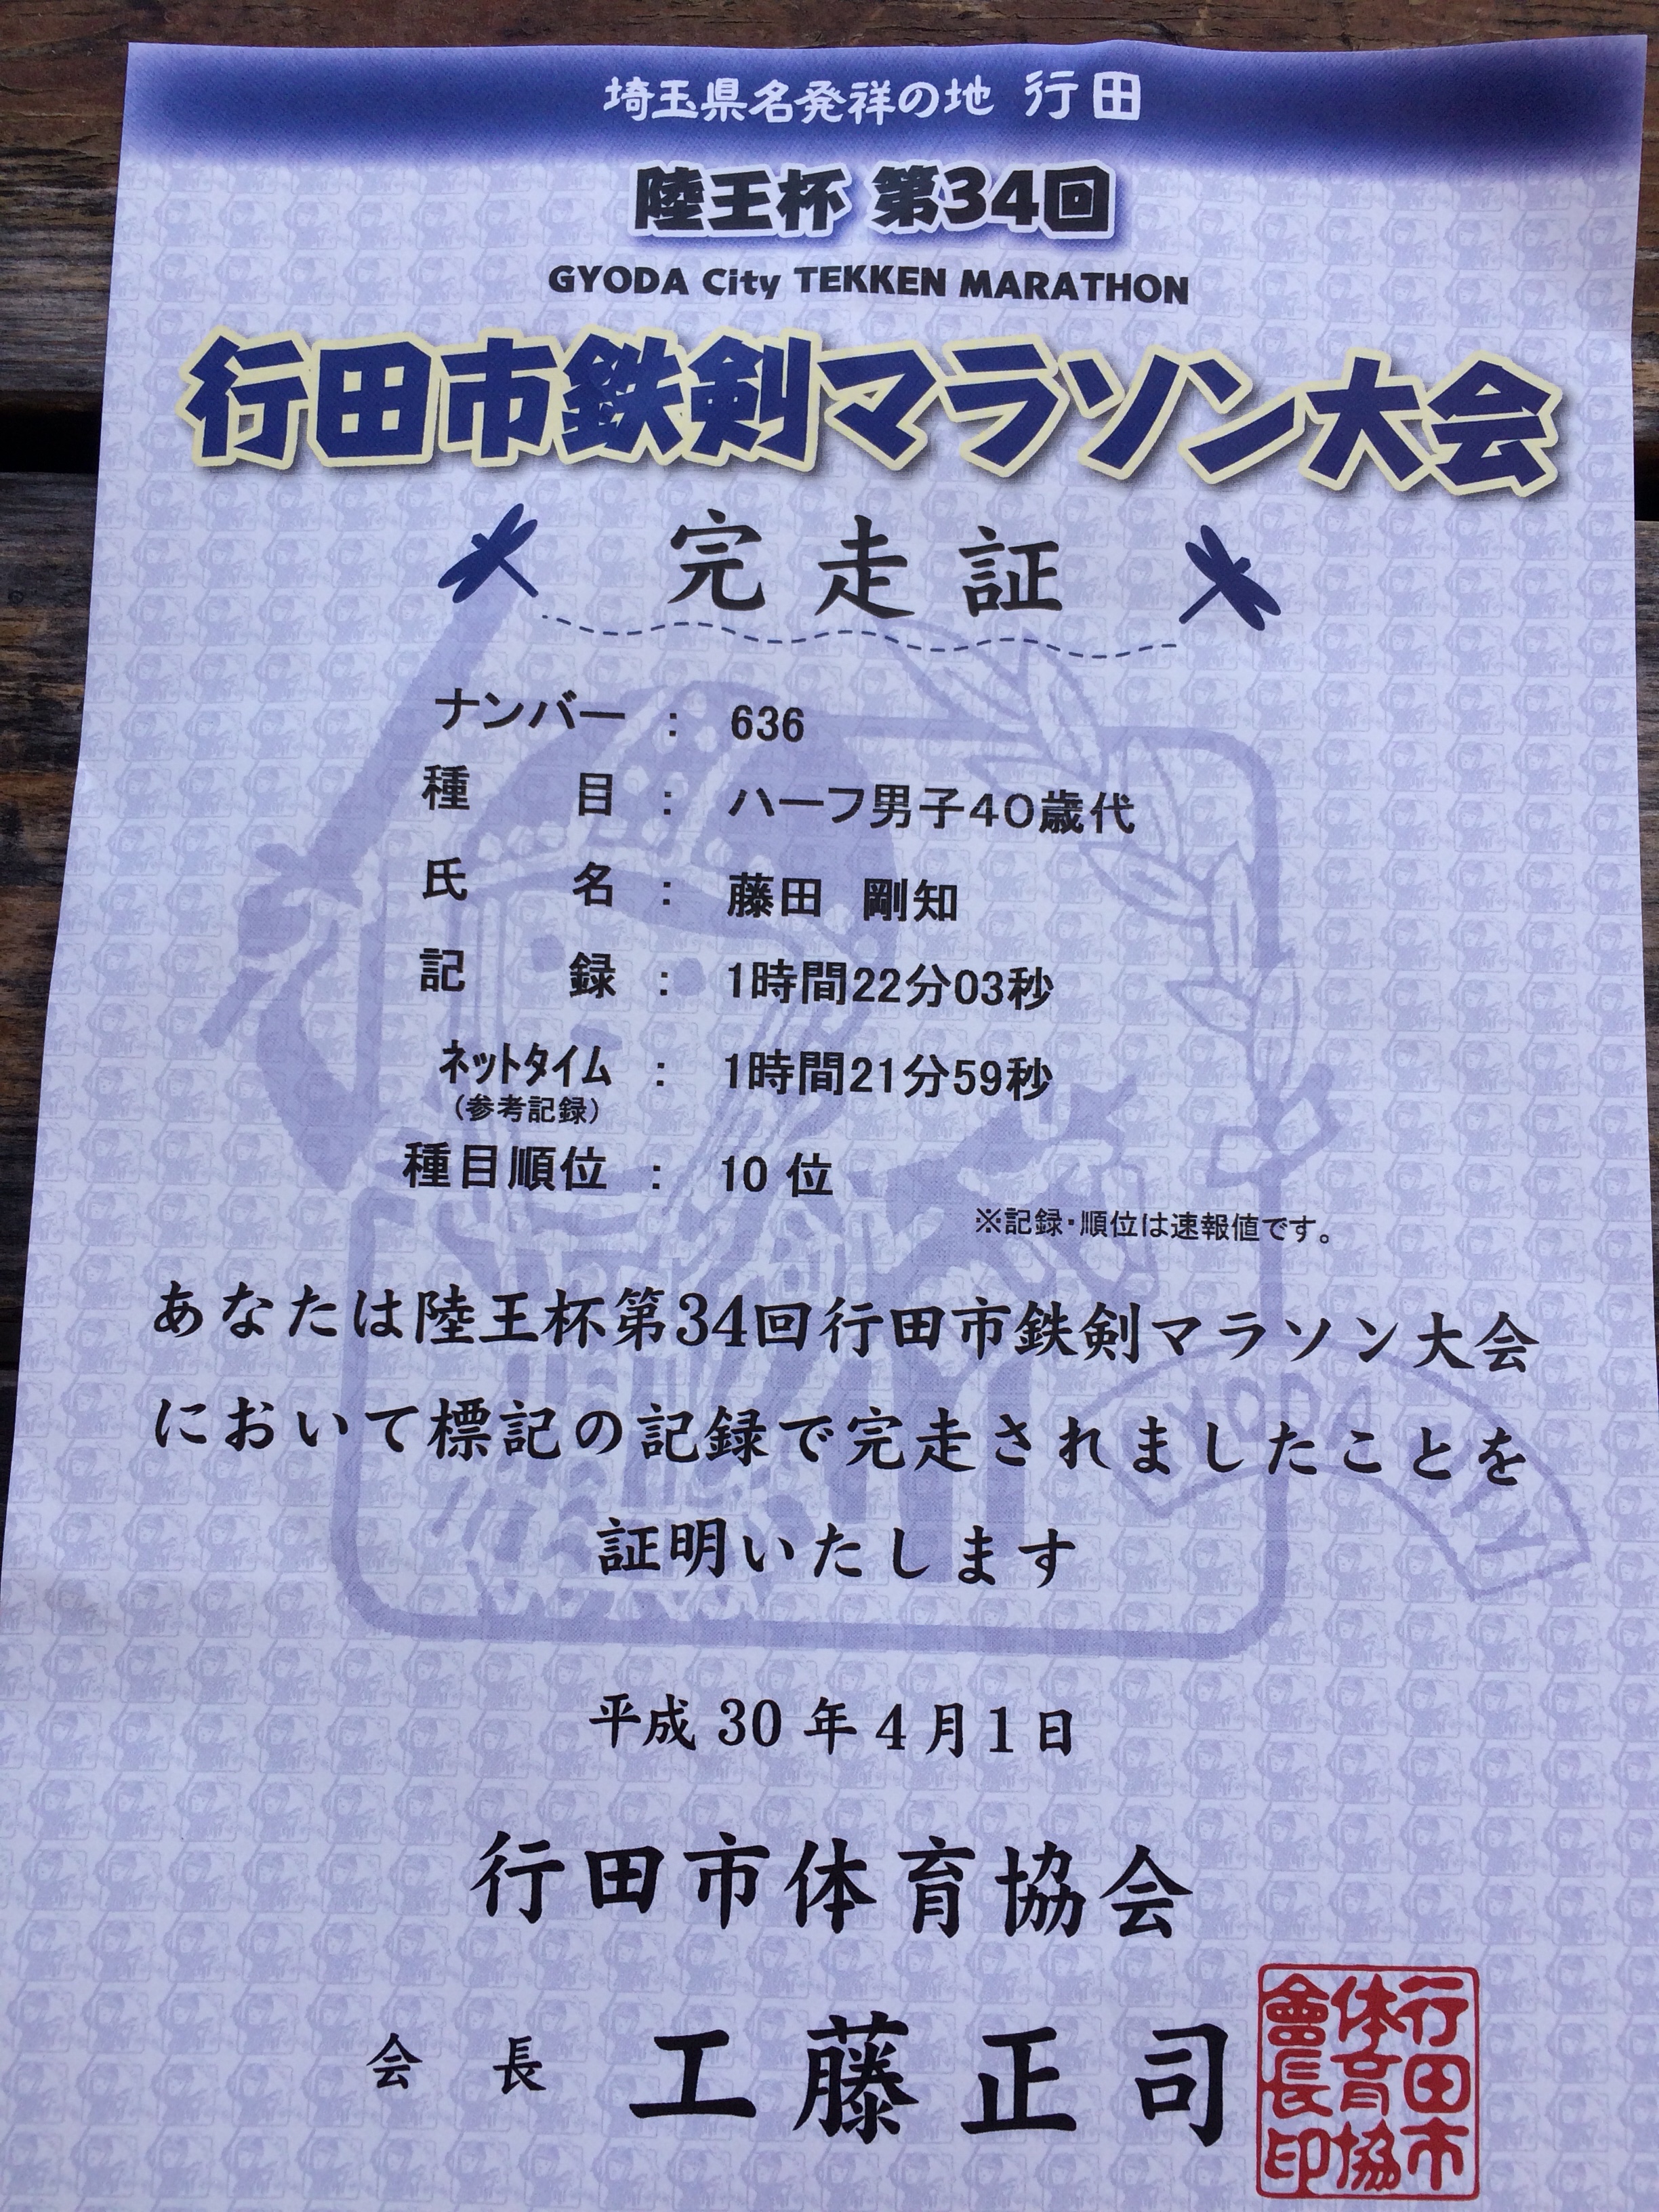 埼玉県名発祥の地 行田
陸王杯 第34回
GYODA City TEKKEN MARATHON
行田市鉄剣マラソン大会
完走証
ナンバー : 636
種目 : ハーフ男子40歳代
氏名 : 藤田 剛知
記録 : 1時間22分03秒
ネットタイム : 1時間21分59秒
(参考記録)
種目順位 : 10 位
※記録・順位は速報値です。
あなたは陸王杯第34回行田市鉄剣マラソン大会
において標記の記録で完走されましたことを
証明いたします
GYODA CITY
平成 30 年 4 月 1 日
行田市体育協会
会長 工藤正司
行田市
体育協
會長印